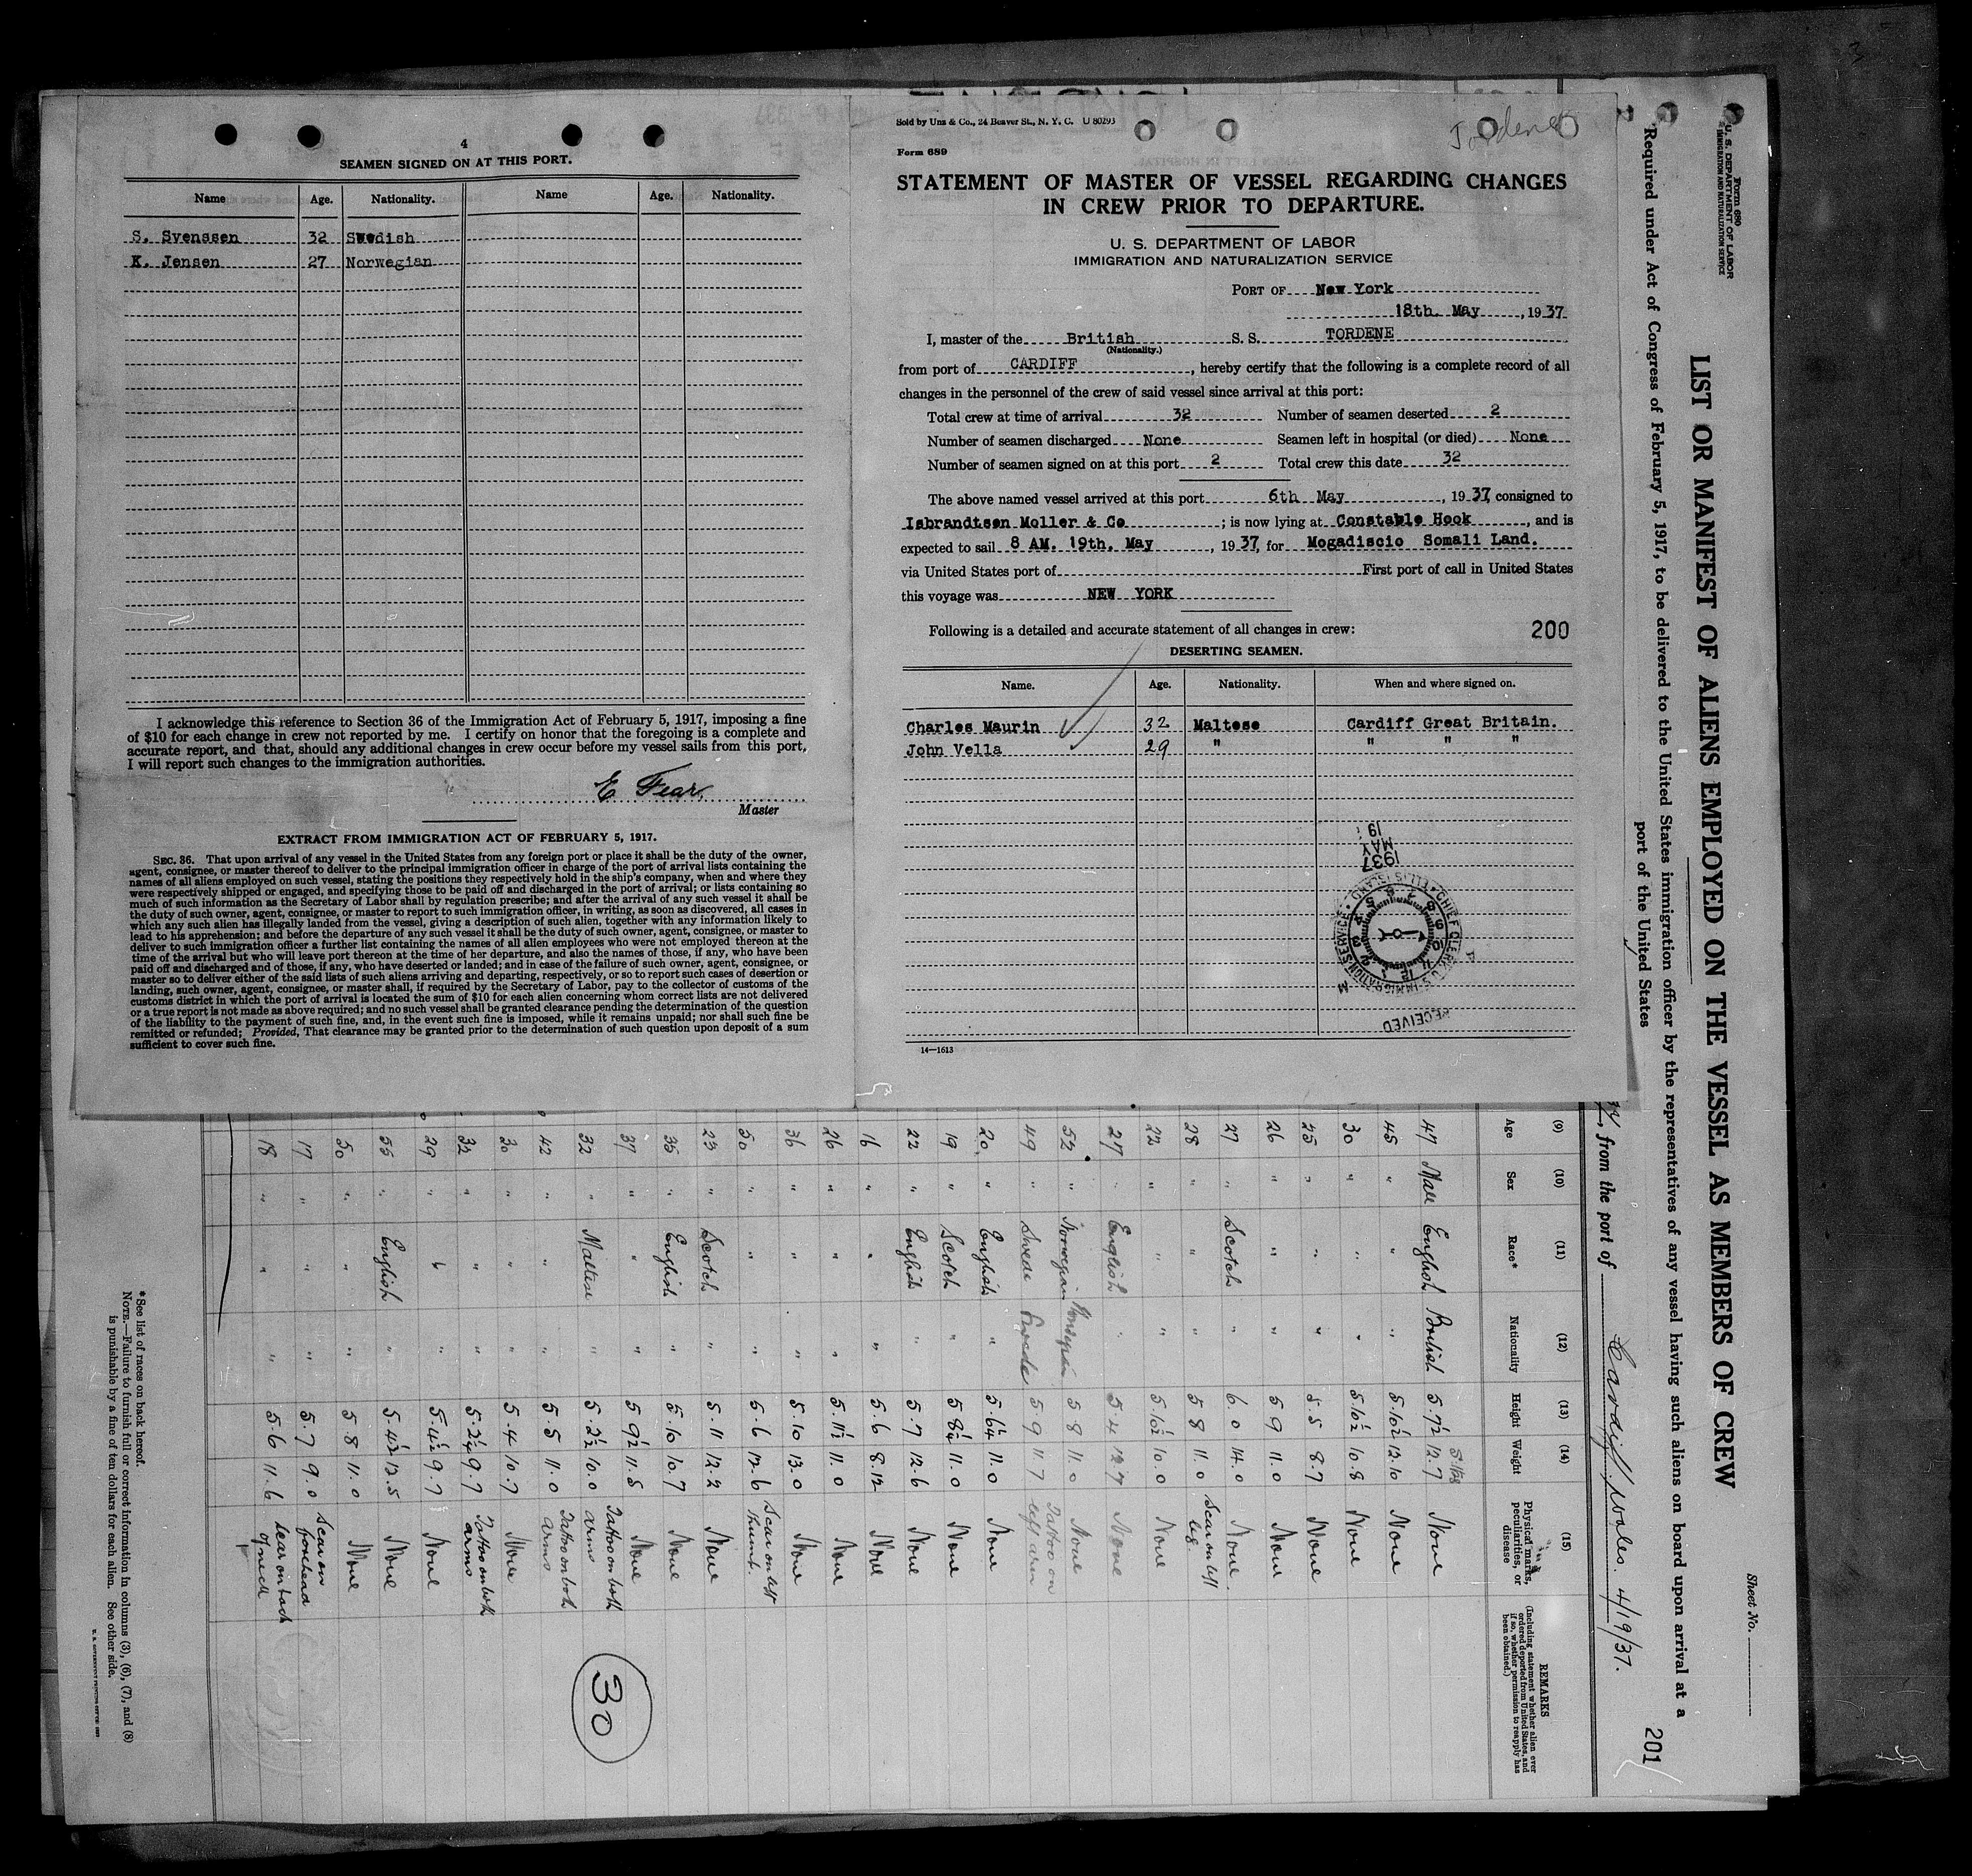 4
SEAMEN SIGNED ON AT THIS PORT.
Name Age. Nationality. Name Age. Nationality.
S. Svenssen 32 Swedish
K. Jensen 27 Norwegian
I acknowledge this reference to Section 36 of the Immigration Act of February 5, 1917, imposing a fine
of $10 for each change in crew not reported by me. I certify on honor that the foregoing is a complete and
accurate report, and that, should any additional changes in crew occur before my vessel sails from this port,
I will report such changes to the immigration authorities.
E Fear
Master
EXTRACT FROM IMMIGRATION ACT OF FEBRUARY 5, 1917.
SEC. 36. That upon arrival of any vessel in the United States from any foreign port or place it shall be the duty of the owner,
agent, consignee, or master thereof to deliver to the principal immigration officer in charge of the port of arrival lists containing the
names of all aliens employed on such vessel, stating the positions they respectively hold in the ship's company, when and where they
were respectively shipped or engaged, and specifying those to be paid off and discharged in the port of arrival; or lists containing so
much of such information as the Secretary of Labor shall by regulation prescribe; and after the arrival of any such vessel it shall be
the duty of such owner, agent, consignee, or master to report to such immigration officer, in writing, as soon as discovered, all cases in
which any such alien has illegally landed from the vessel, giving a description of such alien, together with any information likely to
lead to his apprehension; and before the departure of any such vessel it shall be the duty of such owner, agent, consignee, or master to
deliver to such immigration officer a further list containing the names of all alien employees who were not employed thereon at the
time of the arrival but who will leave port thereon at the time of her departure, and also the names of those, if any, who have been
paid off and discharged and of those, if any, who have deserted or landed; and in case of the failure of such owner, agent, consignee, or
master so to deliver either of the said lists of such aliens arriving and departing, respectively, or so to report such cases of desertion or
landing, such owner, agent, consignee, or master shall, if required by the Secretary of Labor, pay to the collector of customs of the
customs district in which the port of arrival is located the sum of $10 for each alien concerning whom correct lists are not delivered
or a true report is not made as above required; and no such vessel shall be granted clearance pending the determination of the question
of the liability to the payment of such fine, and, in the event such fine is imposed, while it remains unpaid; nor shall such fine be
remitted or refunded; Provided, That clearance may be granted prior to the determination of such question upon deposit of a sum
sufficient to cover such fine.
Sold by Unz & Co., 24 Beaver St., N. Y. C. U 80293
Tordene
Form 689
STATEMENT OF MASTER OF VESSEL REGARDING CHANGES
IN CREW PRIOR TO DEPARTURE.
U. S. DEPARTMENT OF LABOR
IMMIGRATION AND NATURALIZATION SERVICE
PORT OF New York
18th. May, 1937
I, master of the British S. S. TORDENE
(Nationality.)
from port of CARDIFF, hereby certify that the following is a complete record of all
changes in the personnel of the crew of said vessel since arrival at this port:
Total crew at time of arrival 32 Number of seamen deserted 2
Number of seamen discharged None Seamen left in hospital (or died) None
Number of seamen signed on at this port 2 Total crew this date 32
The above named vessel arrived at this port 6th May, 1937, consigned to
Isbrandtsen Moller & Co; is now lying at Constable Hook, and is
expected to sail 8 AM. 19th. May, 1937, for Mogadiscio Somali Land.
via United States port of First port of call in United States
this voyage was NEW YORK
Following is a detailed and accurate statement of all changes in crew: 200
DESERTING SEAMEN.
Name. Age. Nationality. When and where signed on.
Charles Maurin 32 Maltese Cardiff Great Britain.
John Vella 29 " " " "
1937
MAY 19
RECEIVED
14—1613
Form 680
U. S. DEPARTMENT OF LABOR
IMMIGRATION AND NATURALIZATION SERVICE
Sheet No.
LIST OR MANIFEST OF ALIENS EMPLOYED ON THE VESSEL AS MEMBERS OF CREW
Required under Act of Congress of February 5, 1917, to be delivered to the United States immigration officer by the representatives of any vessel having such aliens on board upon arrival at a
port of the United States
201
, from the port of Cardiff. Wales. 4/19/37.
(9) (10) (11) (12) (13) (14) (15)
Age Sex Race* Nationality Height Weight Physical marks, peculiarities, or disease REMARKS
(Including statement whether alien ever ordered deported from United States, and if so, whether permission to reapply has been obtained.)
47 Male English British 5.7½ 12.7 None
45 " " " 5.10½ 12.10 None
30 " " " 5.10½ 10.8 None
25 " " " 5.5 8.7 None
26 " " " 5 9 11.0 None
27 " Scotch " 6.0 14.0 None.
28 " " " 5 8 11.0 Scar on left leg.
22 " " " 5.10½ 10.0 None
27 " English " 5.4 12 7 None
52 " Norwegian Norwegian 5 8 11.0 None
49 " Swede Swede 5 9 11 7 Tattoo on left arm
20 " English " 5.6¼ 11.0 None
19 " Scotch " 5 8¼ 11.0 None
22 " English " 5.7 12.6 None
16 " " " 5.6 8.12 None
26 " " " 5.11½ 11.0 None
36 " " " 5.10 13.0 None
50 " " " 5.6 12.6 Scar on left thumb.
23 " Scotch " 5.11 12.2 None
35 " English " 5.10 10.7 None
37 " " " 5 9½ 11.5 None
32 " Maltese " 5.2½ 10.0 Tattoo on both arms
42 " " " 5.5 11.0 Tattoo on both arms
30 " " " 5.4 10.7 None
32 " " " 5.2¼ 9.7 Tattoo on both arms
29 " " " 5.4½ 9.7 None
55 " English " 5.4½ 12.5 None
50 " " " 5.8 11.0 None
17 " " " 5.7 9.0 Scar on forehead
18 " " " 5.6 11.6 Scar on back of neck
30
* See list of races on back hereof.
NOTE.—Failure to furnish full or correct information in columns (3), (6), (7), and (8)
is punishable by a fine of ten dollars for each alien. See other side.